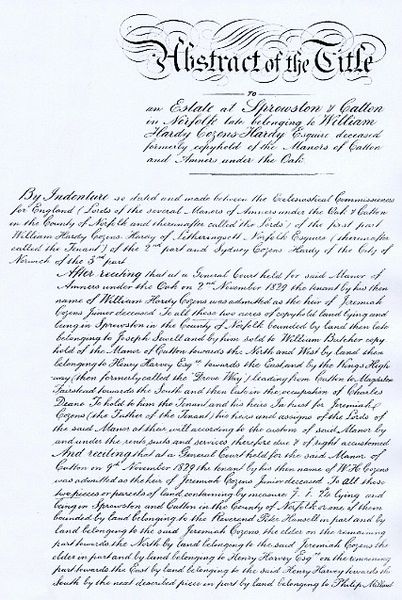 Abstract of the Title
TO
an Estate at Sprowston & Catton
in Norfolk late belonging to William
Hardy Cozens Hardy Esquire deceased
formerly copyhold of the Manors of Catton
and Anners under the Oak
By Indenture so dated and made between the Ecclesiastical Commissioners
for England (Lords of the several Manors of Anners under the Oak & Catton
in the County of Norfolk and thereinafter called the Lords) of the first part
William Hardy Cozens Hardy of Letheringsett Norfolk Esquire (thereinafter
called the Tenant) of the 2nd part and Sydney Cozens Hardy of the City of
Norwich of the 3rd part
After reciting that at a General Court held for said Manor of
Anners under the Oak on 2nd November 1829 the tenant by his then
name of William Hardy Cozens was admitted as the heir of Jeremiah
Cozens Junior deceased To all these two acres of copyhold land lying and
being in Sprowston in the County of Norfolk bounded by land then late
belonging to Joseph Sewell and by him sold to William Butcher copy
hold of the Manor of Catton towards the North and West by land then
belonging to Henry Harvey Esqre towards the East and by the Kings High
way (then formerly called the "Drove Way") leading from Catton to Magdalen
Fairstead towards the South and then late in the occupation of Charles
Deane To hold to him the Tenant and his heirs In trust for Jeremiah
Cozens (the Father of the Tenant) his heirs and assigns of the Lords of
the said Manor at their will according to the custom of said Manor by
and under the rents suits and services therefore due & of right accustomed
And reciting that at a General Court held for the said Manor of
Catton on 9th November 1829 the tenant by his then name of W. H. Cozens
was admitted as the heir of Jeremiah Cozens Junior deceased To all those
two pieces or parcels of land containing by measure 7. 1. 26 lying and
being in Sprowston and Catton in the County of Norfolk or one of them
bounded by land belonging to the Reverend Peter Hansell in part and by
land belonging to the said Jeremiah Cozens the elder on the remaining
part towards the North by land belonging to the said Jeremiah Cozens the
elder in part and by land belonging to Henry Harvey Esqre on the remaining
part towards the East by land belonging to the said Henry Harvey towards the
South by the next described piece in part by land belonging to Philip